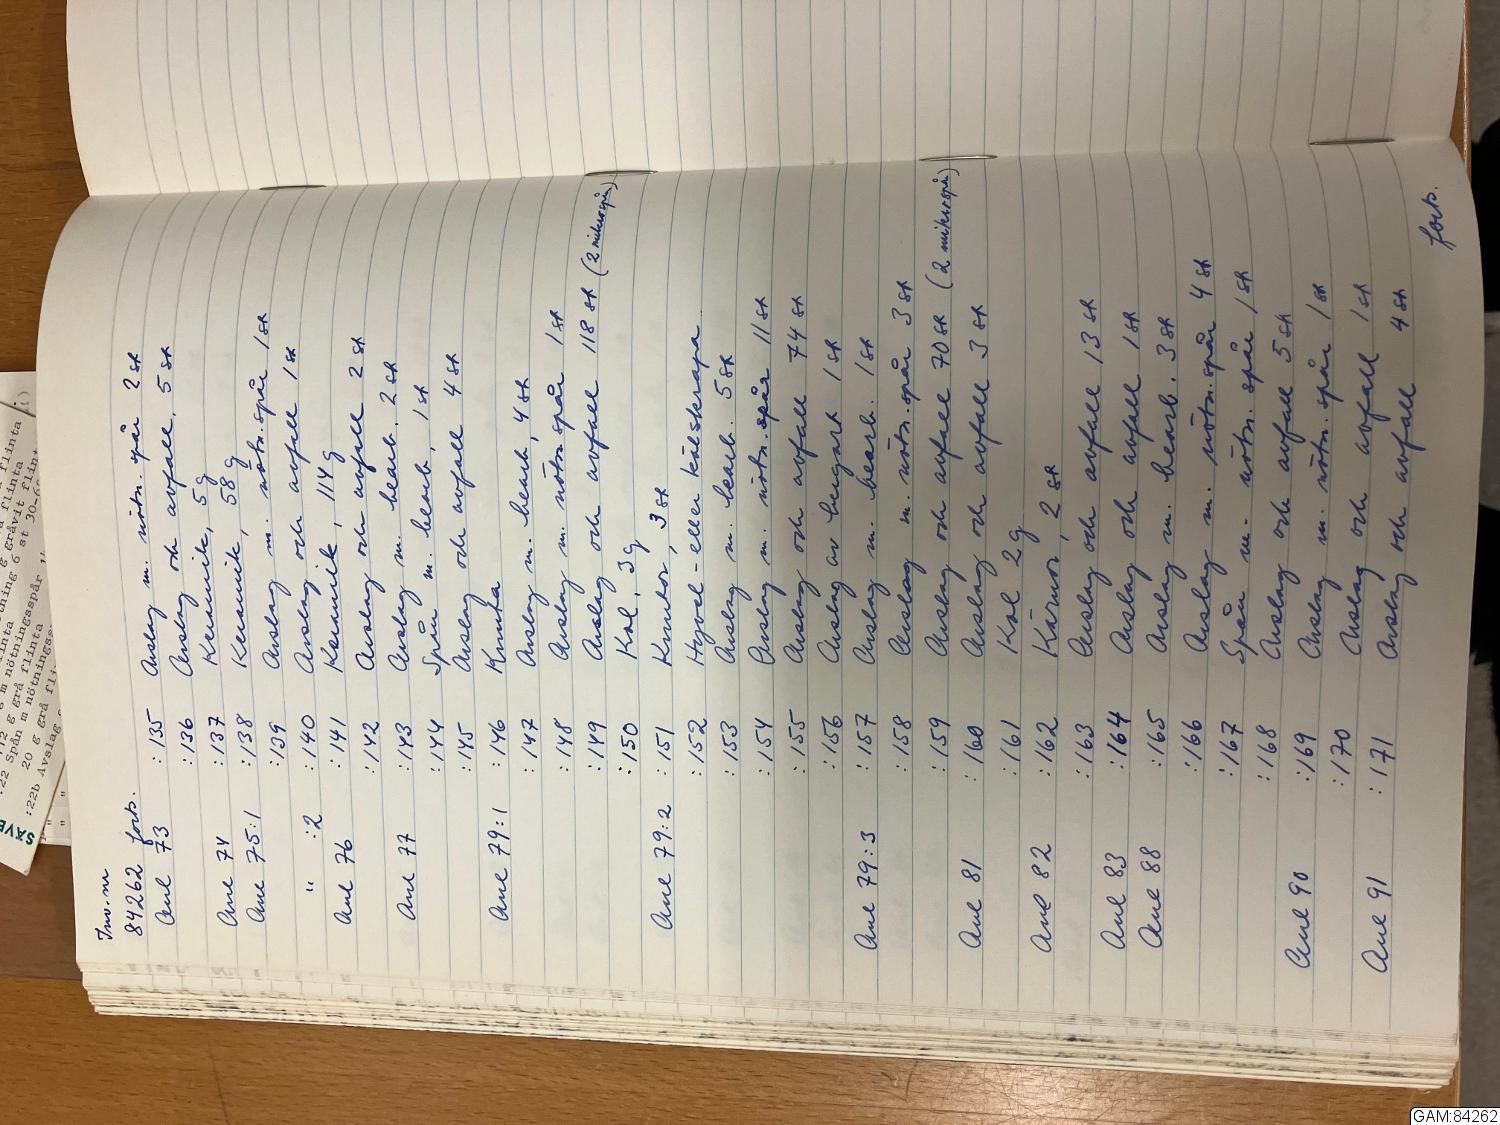 Inv. nr
84262 forts.
Anl 73 :135 Avslag m. nötn. spår 2 st
:136 Avslag och avfall. 5 st
:137 Keramik, 5 g
Anl 74 :138 Keramik, 58 g
Anl 75:1 :139 Avslag m. nötn. spår 1 st
" :2 :140 Avslag och avfall 1 st
Anl 76 :141 Keramik, 114 g
:142 Avslag och avfall 2 st
Anl 77 :143 Avslag m. bearb. 2 st
:144 Spån m. bearb, 1 st
:145 Avslag och avfall 4 st
Anl 79:1 :146 Knacka
:147 Avslag m. bearb, 4 st
:148 Avslag m. nötn spår 1 st
:149 Avslag och avfall 118 st (2 mikrospån)
:150 Kol, 3 g
Anl 79:2 :151 Kärnor, 3 st
:152 Hyvel- eller kölskrapa
:153 Avslag m. bearb. 5 st
:154 Avslag m. nötn. spår 11 st
:155 Avslag och avfall 74 st
:156 Avslag av bergart 1 st
Anl 79:3 :157 Avslag m. bearb. 1 st
:158 Avslag m. nötn. spår 3 st
:159 Avslag och avfall 70 st (2 mikrospån)
Anl 81 :160 Avslag och avfall 3 st
:161 Kol 2 g
Anl 82 :162 Kärnor, 2 st
:163 Avslag och avfall 13 st
Anl 83 :164 Avslag och avfall 1 st
Anl 88 :165 Avslag m. bearb. 3 st
:166 Avslag m. nötn. spår 4 st
:167 Spån m. nötn. spår 1 st
:168 Avslag och avfall 5 st
Anl 90 :169 Avslag m. nötn. spår 1 st
:170 Avslag och avfall 1 st
Anl 91 :171 Avslag och avfall 4 st
forts.
:22 Spån m nötningsspår
20 g grå
:22b Avslag
SÄVE
GAM:84262